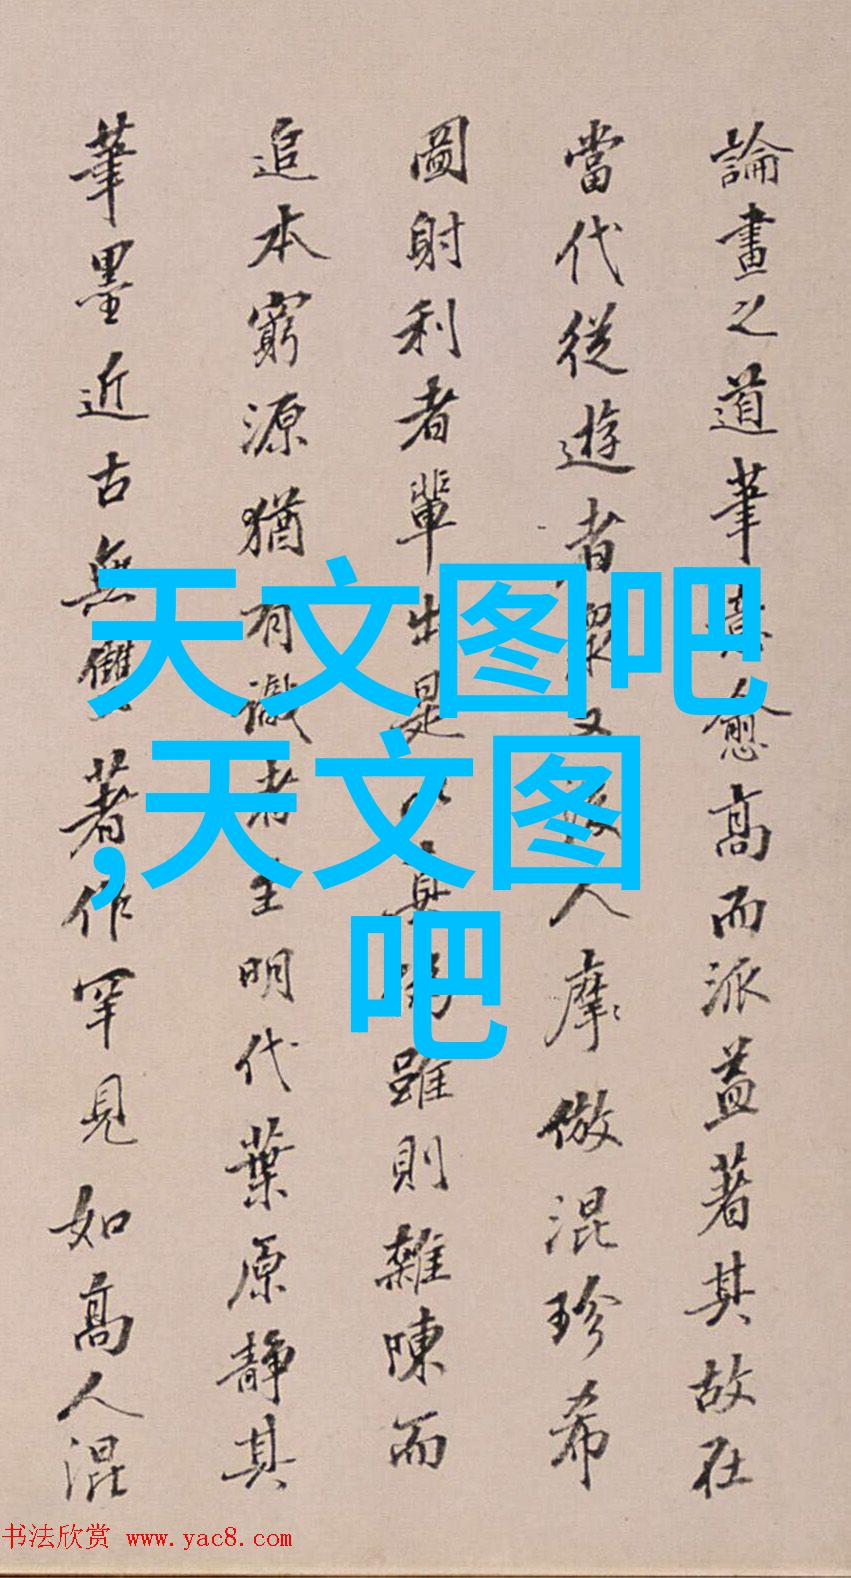 論畫之道筆意愈高而派益著其故在
當代從遊者眾又後人摩倣混珍希
圖射利者輩出是以真偽雖則雜陳而
追本窮源猶有識者至明代葉原靜其
筆墨近古無雙著作罕見如高人混
天文图吧
,天文图
吧
书法欣赏 www.yac8.com